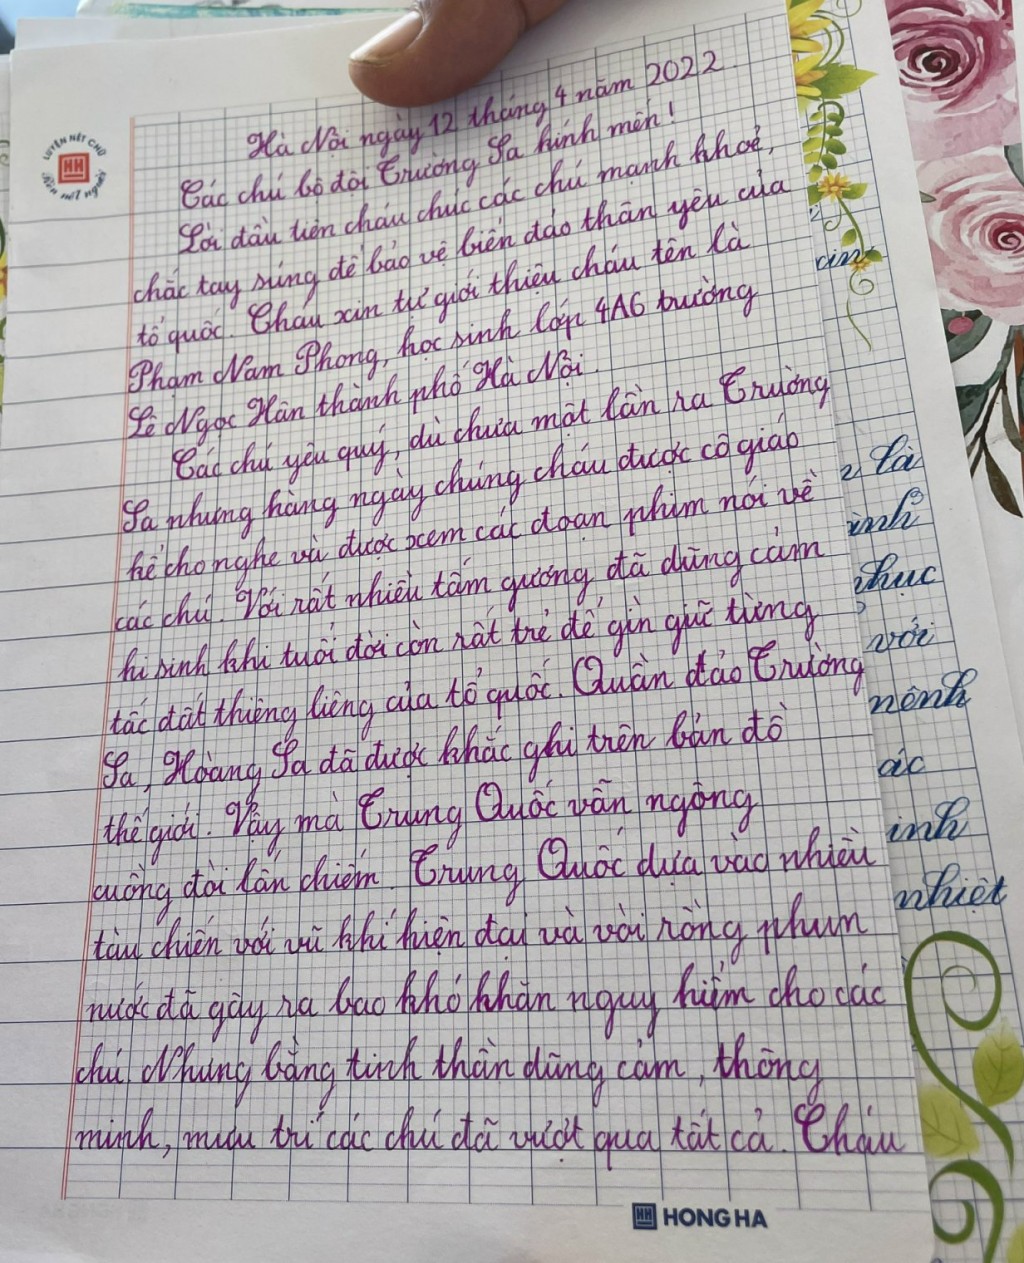 LUYỆN NÉT CHỮ
HH
Rèn nết người
Hà Nội ngày 12 tháng 4 năm 2022
Các chú bộ đội Trường Sa kính mến!
Lời đầu tiên cháu chúc các chú mạnh khoẻ,
chắc tay súng để bảo vệ biển đảo thân yêu của
tổ quốc. Cháu xin tự giới thiệu cháu tên là
Phạm Nam Phong, học sinh lớp 4A6 trường
Lê Ngọc Hân thành phố Hà Nội.
Các chú yêu quý, dù chưa một lần ra Trường
Sa nhưng hàng ngày chúng cháu được cô giáo
kể cho nghe và được xem các đoạn phim nói về
các chú. Với rất nhiều tấm gương đã dũng cảm
hi sinh khi tuổi đời còn rất trẻ để gìn giữ từng
tấc đất thiêng liêng của tổ quốc. Quần đảo Trường
Sa, Hoàng Sa đã được khắc ghi trên bản đồ
thế giới. Vậy mà Trung Quốc vẫn ngông
cuồng đòi lấn chiếm. Trung Quốc dựa vào nhiều
tàu chiến với vũ khí hiện đại và vòi rồng phun
nước đã gây ra bao khó khăn nguy hiểm cho các
chú. Nhưng bằng tinh thần dũng cảm, thông
minh, mưu trí các chú đã vượt qua tất cả. Cháu
HH HONG HA
là
ình
phục
với
nênh
ác
inh
nhiệt